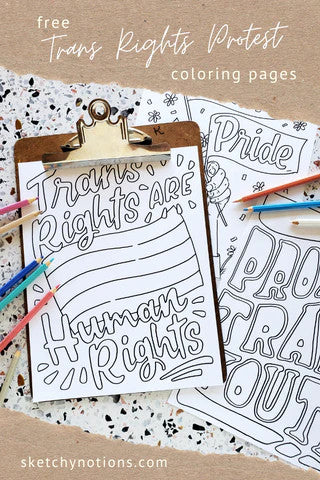 free
Trans Rights Protest
coloring pages
Trans
Rights ARE
Human
Rights
Pride
sketchynotions.com